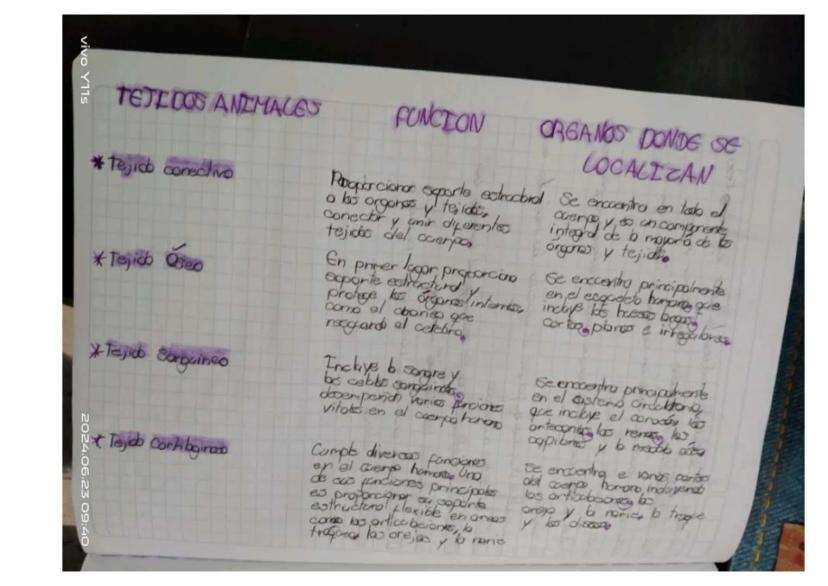 vivo Y11s
2024.06.23 09:40
TEJIDOS ANIMALES
FUNCION
ORGANOS DONDE SE
LOCALIZAN
* Tejido conectivo
Proporcionar soporte estructural
a los organos y tejidos,
conectar y unir diferentes
tejidos del cuerpo.
Se encuentra en todo el
cuerpo y es un componente
integral de la mayoría de los
órganos y tejidos.
* Tejido Óseo
En primer lugar proporciona
soporte estructural y
protege los órganos internos,
como el craneo que
resguarda al celebro.
Se encuentra principalmente
en el esqueleto humano, que
incluye los huesos largos,
cortos, planos e irregulares.
* Tejido Sanguineo
Incluye la sangre y
las celulas sanguineas,
desempeñan varias funciones
vitales en el cuerpo humano
Se encuentra principalmente
en el sistema circulatorio,
que incluye el corazón, las
arterias, las venas, los
capilares y la medula ósea
* Tejido Cartilaginoso
Cumple diversas funciones
en el cuerpo humano. Una
de sus funciones principales
es proporcionar su soporte
estructural flexible en areas
como las articulaciones, la
traquea, las orejas y la nariz
Se encuentra e varias partes
del cuerpo humano, incluyendo
las articulaciones, las
oreja y la nariz, la traque
y los discos.